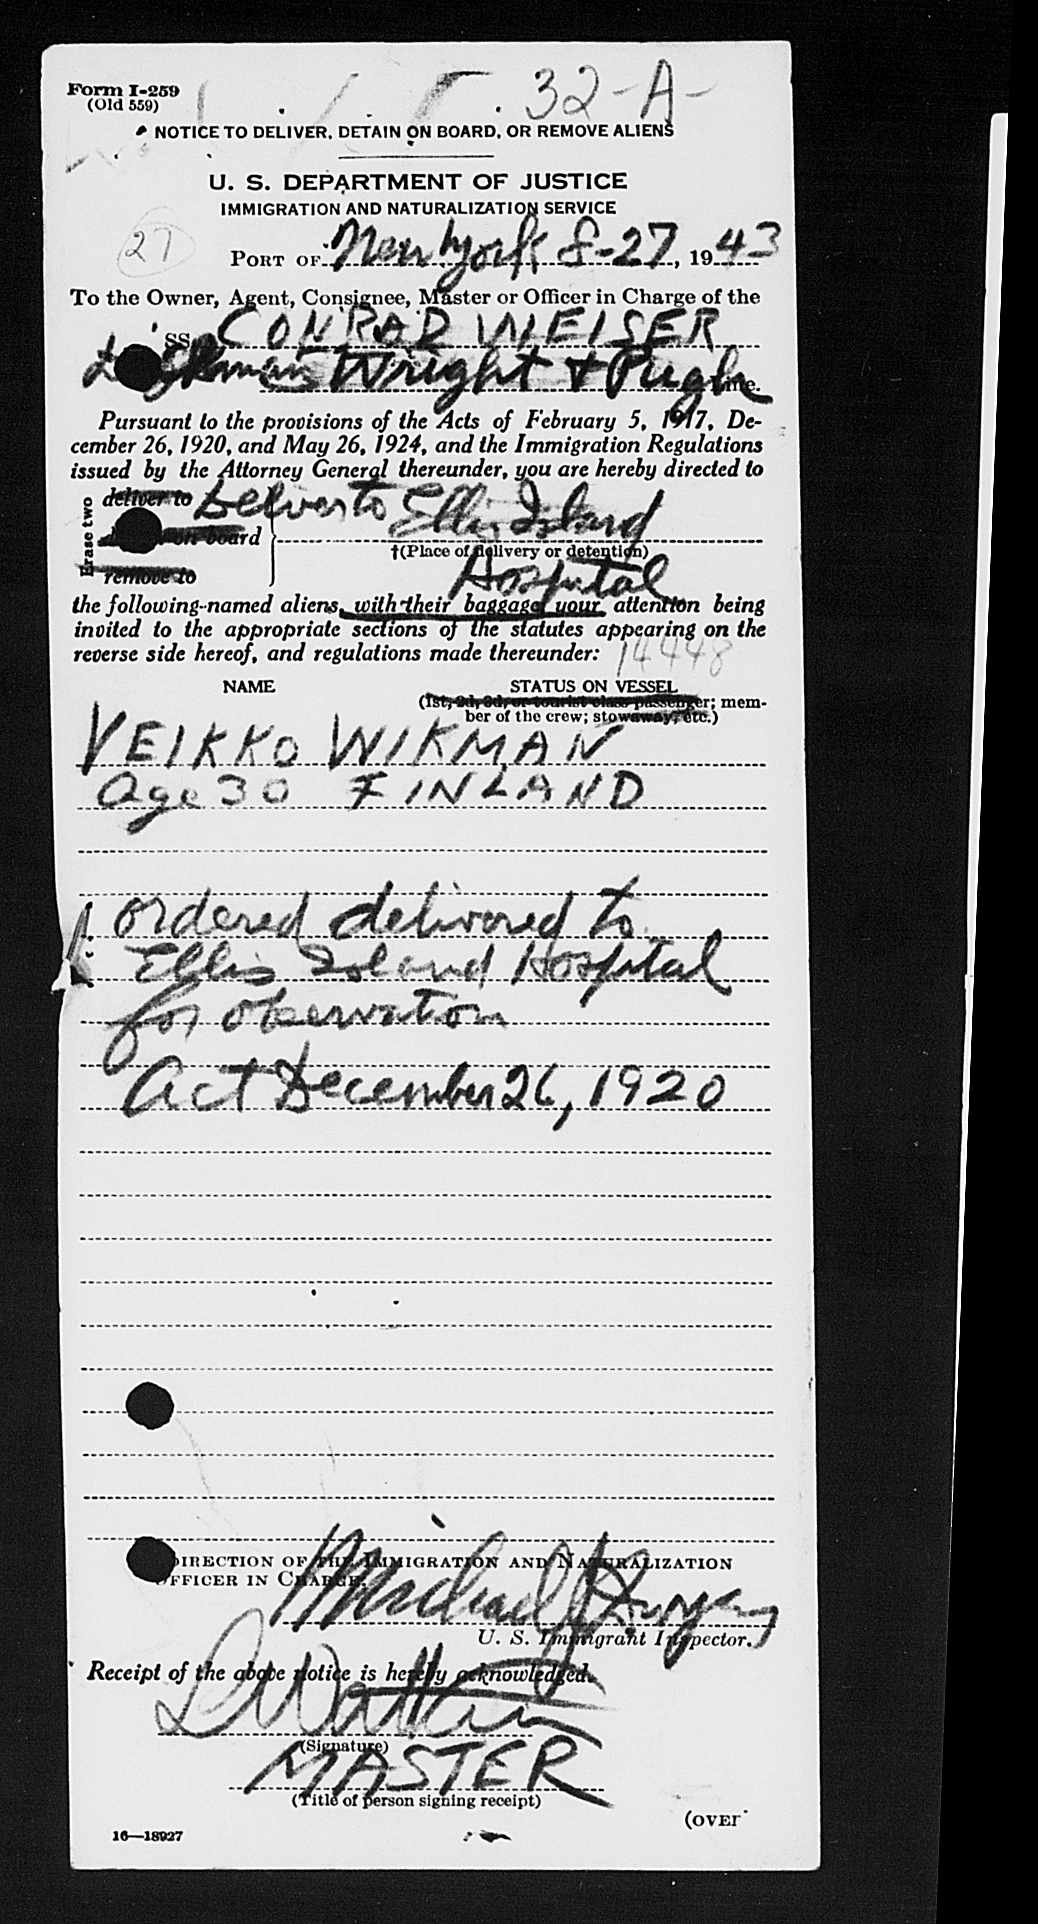 Form I-259
(Old 559)
32-A-
NOTICE TO DELIVER, DETAIN ON BOARD, OR REMOVE ALIENS
U. S. DEPARTMENT OF JUSTICE
IMMIGRATION AND NATURALIZATION SERVICE
27
PORT OF New York 8-27, 1943
To the Owner, Agent, Consignee, Master or Officer in Charge of the
SS. CONRAD WEISER
Wright & Pugh Line.
Pursuant to the provisions of the Acts of February 5, 1917, De-
cember 26, 1920, and May 26, 1924, and the Immigration Regulations
issued by the Attorney General thereunder, you are hereby directed to
Erase two
deliver to Deliver to Ellis Island
on board
†(Place of delivery or detention)
remove to Hospital
the following-named aliens, with their baggage, your attention being
invited to the appropriate sections of the statutes appearing on the
reverse side hereof, and regulations made thereunder: 14448
NAME STATUS ON VESSEL
(1st, 2d, 3d, or tourist class passenger; mem-
ber of the crew; stowaway, etc.)
VEIKKO WIKMAN
Age 30 FINLAND
ordered delivered to
Ellis Island Hospital
for observation
Act December 26, 1920
DIRECTION OF THE IMMIGRATION AND NATURALIZATION
OFFICER IN CHARGE.
Michael
U. S. Immigrant Inspector.
Receipt of the above notice is hereby acknowledged.
(Signature)
MASTER
(Title of person signing receipt)
(OVER
16—18927